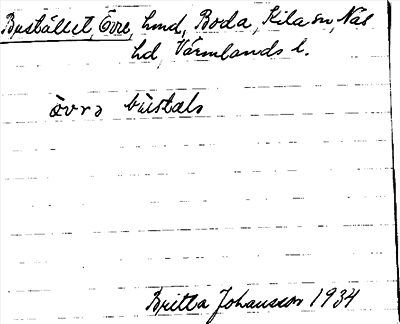 Bustållet, Övre, hmd, Boda, Kila sn, Näs
hd, Värmlands l.
övrə bùstals
Britta Johansson 1934